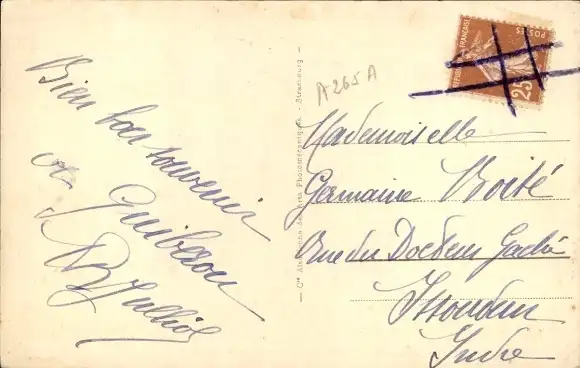 Bien bon souvenir
de Guibeson
A 265 A
RÉPUBLIQUE FRANÇAISE
POSTES
25
Cie Alsacienne des Arts Photomécaniques - Strasbourg
Mademoiselle
Germaine Boité
Rue du Docteur
Issoudun
Indre